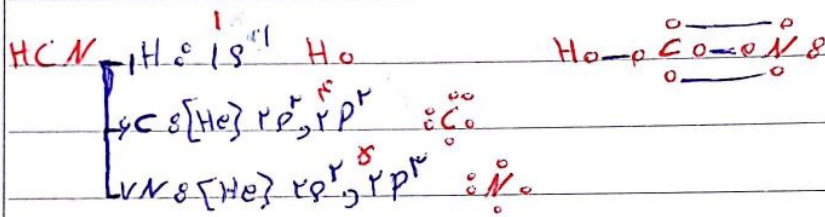 HCN ₁H: 1s¹ ۱ H∘ H∘—∘C∘—∘N:
₆C: [He] ۲s², ۲p² ۴ :C:
₇N: [He] ۲s², ۲p³ ۵ :N: